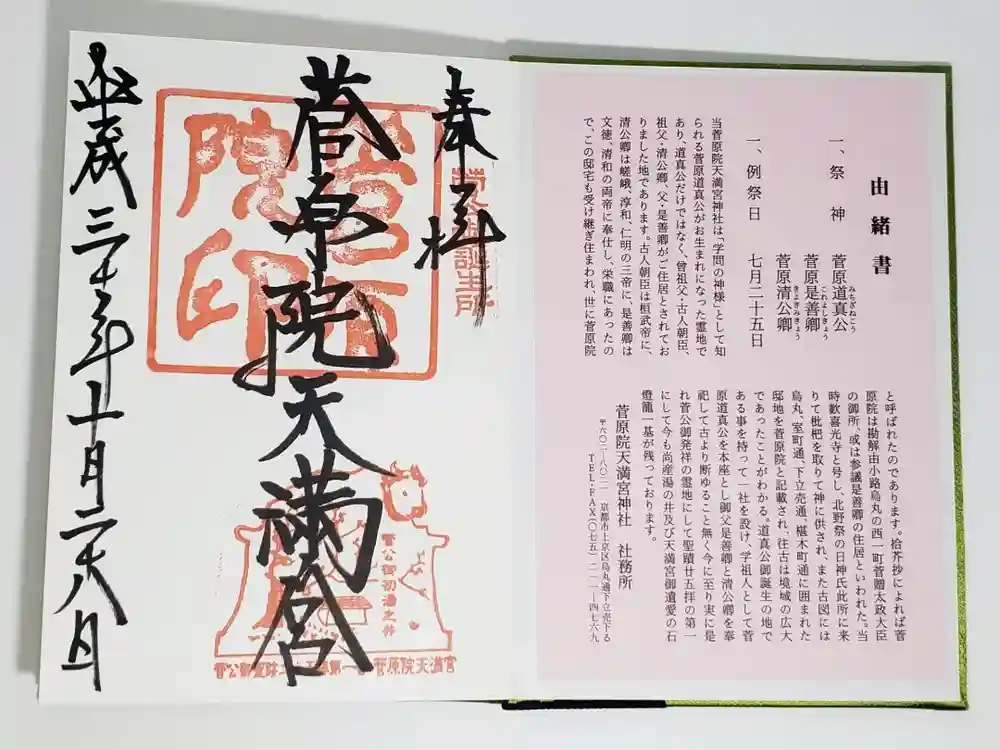 由緒書
一、祭神 菅原道真公
みちざねこう
菅原是善卿
これよしきょう
菅原清公卿
きよきみきょう
一、例祭日 七月二十五日
当菅原院天満宮神社は「学問の神様」として知
られる菅原道真公がお生まれになった霊地で
あり、道真公だけではなく、曾祖父・古人朝臣、
祖父・清公卿、父・是善卿がご住居とされてお
りました地であります。古人朝臣は桓武帝に、
清公卿は嵯峨、淳和、仁明の三帝に、是善卿は
文徳、清和の両帝に奉仕し、栄職にあったの
で、この邸宅も受け継ぎ住まわれ、世に菅原院
と呼ばれたのであります。拾芥抄によれば菅
原院は勘解由小路烏丸の西一町菅贈太政大臣
の御所、或は参議是善卿の住居といわれた。当
時歓喜光寺と号し、北野祭の日神氏此所に来
りて枇杷を取りて神に供され、また古図には
烏丸、室町通、下立売通、椹木町通に囲まれた
邸地を菅原院と記載され、往古は境域の広大
であったことがわかる。道真公御誕生の地で
ある事を持って一社を設け、学祖人として菅
原道真公を本座とし御父是善卿と清公卿を奉
祀して古より断ゆること無く今に至り実に是
れ菅公御発祥の霊地にして聖蹟廿五拝の第一
にして今も尚産湯の井及び天満宮御遺愛の石
燈籠一基が残っております。
菅原院天満宮神社 社務所
〒六〇二-八〇二一 京都市上京区烏丸通下立売下る
TEL・FAX〇七五-二一一-四七六九
奉拝
菅原院天満宮
菅公御初湯之井
菅原院天満宮
平成三十年十月二十八日